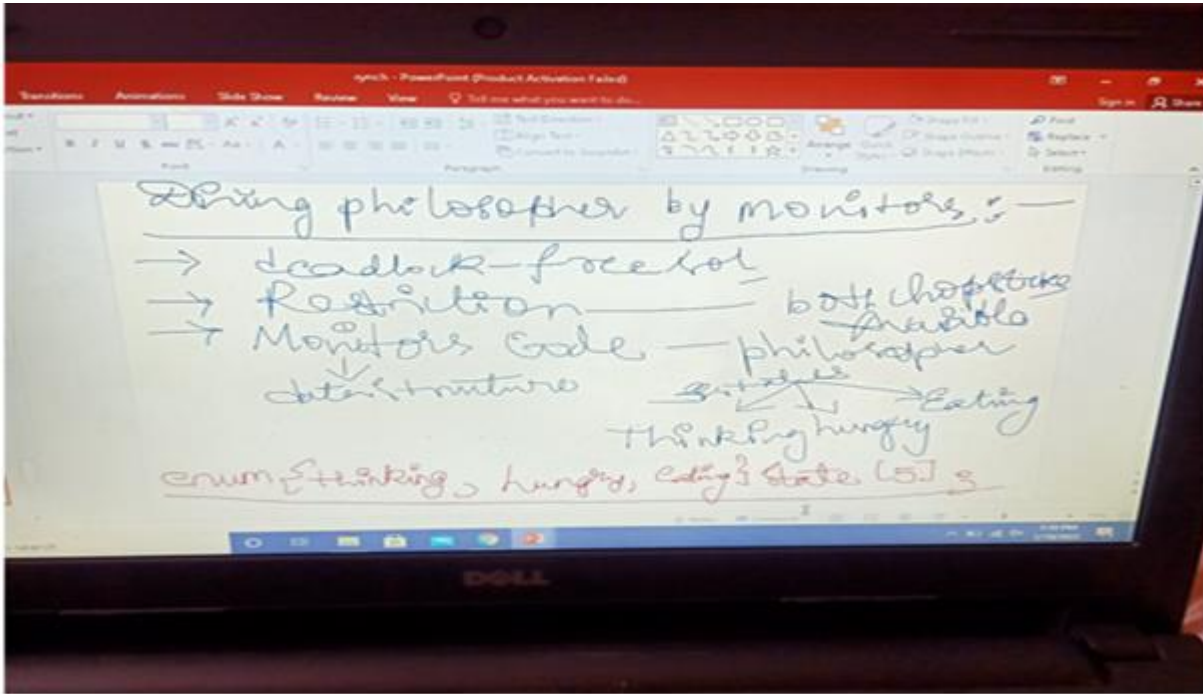 synch - PowerPoint (Product Activation Failed)
Transitions Animations Slide Show Review View Tell me what you want to do...
Sign in Share
Text Direction
Align Text
Convert to SmartArt
Arrange
Quick Styles
Shape Fill
Shape Outline
Shape Effects
Find
Replace
Select
Font Paragraph Drawing Editing
Dining philosopher by monitors :-
→ deadlock-free sol
→ Restriction — both chopsticks
→ Monitors Code — philosopher
data structure
Eating
Thinking hungry
enum {thinking, hungry, eating} state [5] ;
DELL